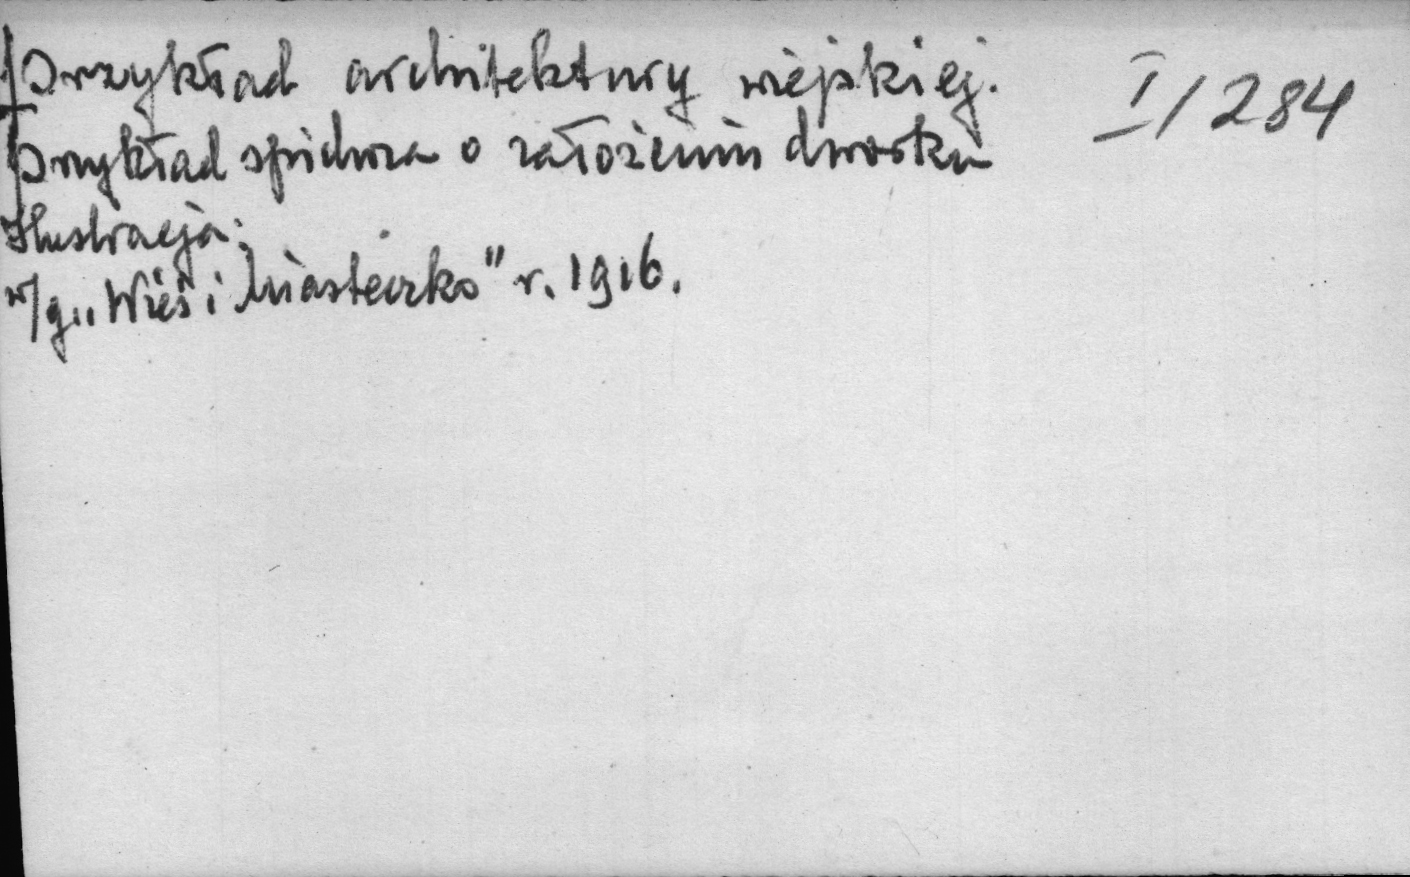 Przykład architektury wiejskiej. I/284
Przykład spichrza o założeniu dworku
Ilustracja.
w/g „Wieś i Miasteczko" r. 1916.